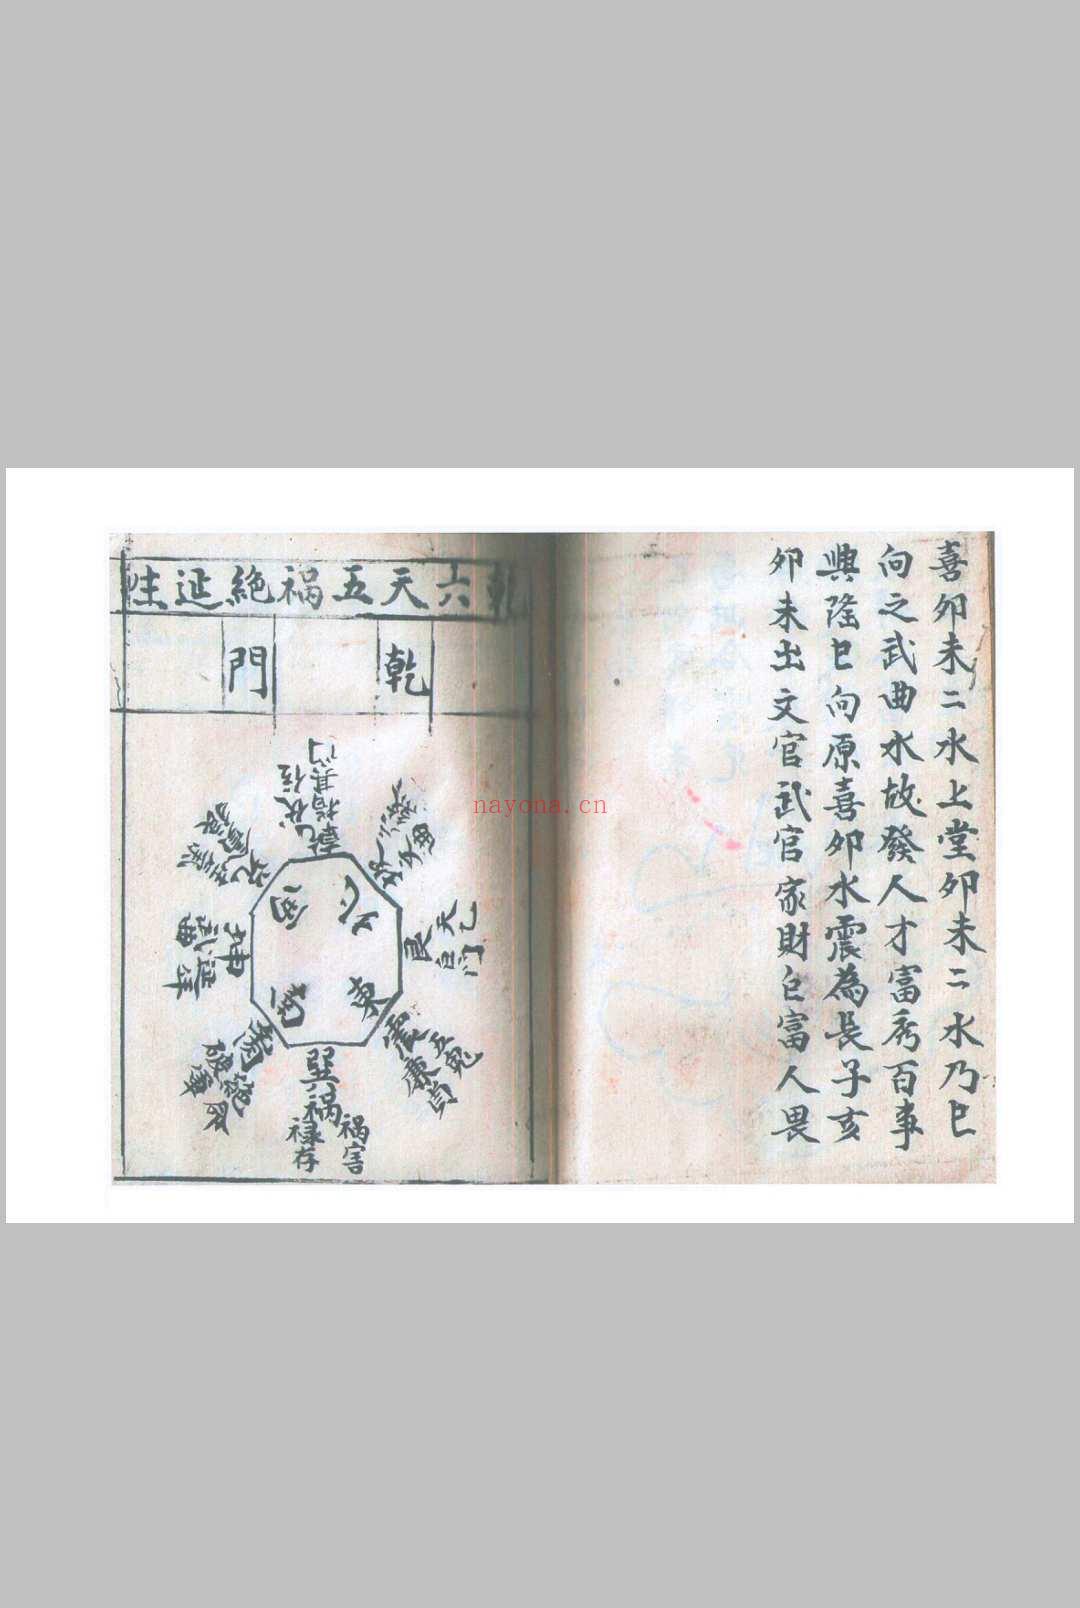 喜卯未二水上堂卯未二水乃巳
向之武曲水故發人才富秀百事
興隆巳向原喜卯水震為長子亥
卯未出文官武官家財巨富人畏
乾六天五祸絶延生
乾
門
乾伏位
坎六
文曲
艮天
巨门
震五鬼
廉貞
巽祸
祸害
禄存
離絶
破軍
坤延
武曲
兌生
東
nayona.cn